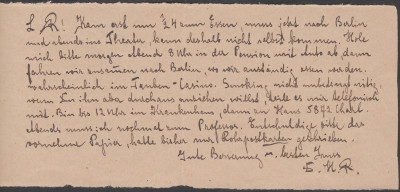 L. R! Kam erst um 1/4 4 zum Essen, muss jetzt nach Berlin
und abends ins Theater, kann deshalb nicht selbst kommen. Hole
mich bitte morgen abend 8 Uhr in der Pension mit Auto ab, dann
fahren wir zusammen nach Berlin, wo wir anständig essen werden.
Wahrscheinlich im Casino. Smoking nicht unbedingt nötig,
wenn Du ihn aber durchaus anziehen willst, teile es mir telefonisch
mit. Bin bis 12 Uhr im Krankenhaus, dann zu Haus
abends muss ich nochmal zum Professor. Entschuldige bitte das
vornehme Papier, hatte bisher nur Rohrpostkarten geschrieben.
Gute Besserung u. besten Gruss